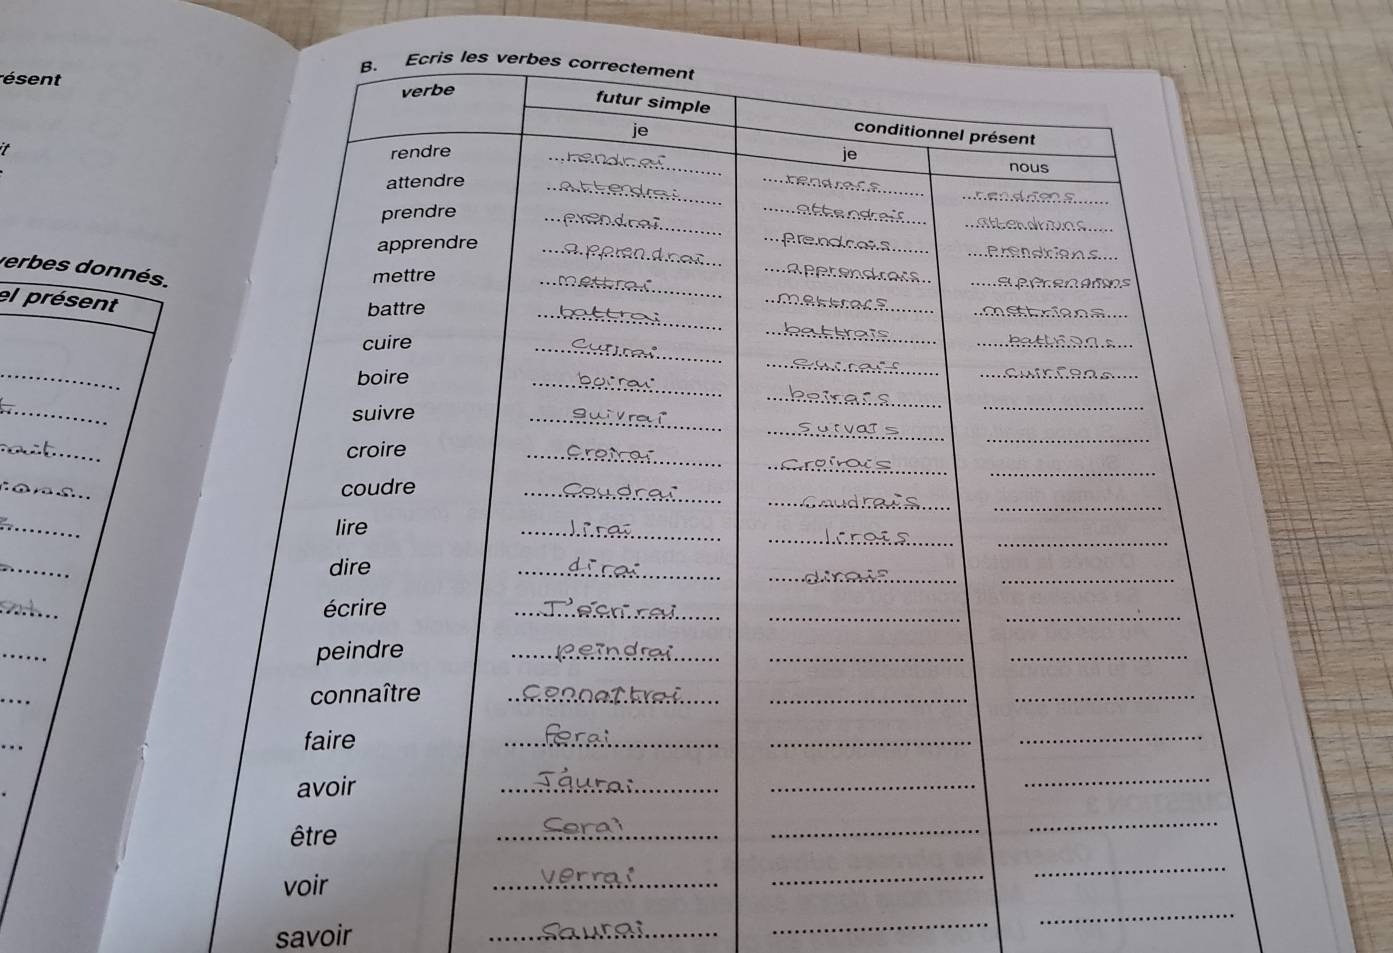 ésent
it
verbes donnés.
el présent
rait
ions
B. Ecris les verbes correctement
verbe futur simple conditionnel présent
je je nous
rendre rendrai rendrais rendrions
attendre attendrai attendrais attendrions
prendre prendrai prendrais prendrions
apprendre apprendrai apprendrais apprendrions
mettre mettrai mettrais mettrions
battre battrai battrais battrions
cuire cuirai cuirais cuirions
boire boirai boirais
suivre suivrai suivais
croire croirai croirais
coudre coudrai coudrais
lire lirai lirais
dire dirai dirais
écrire J'écrirai
peindre peindrai
connaître connaîtrai
faire ferai
avoir J'aurai
être serai
voir verrai
savoir saurai